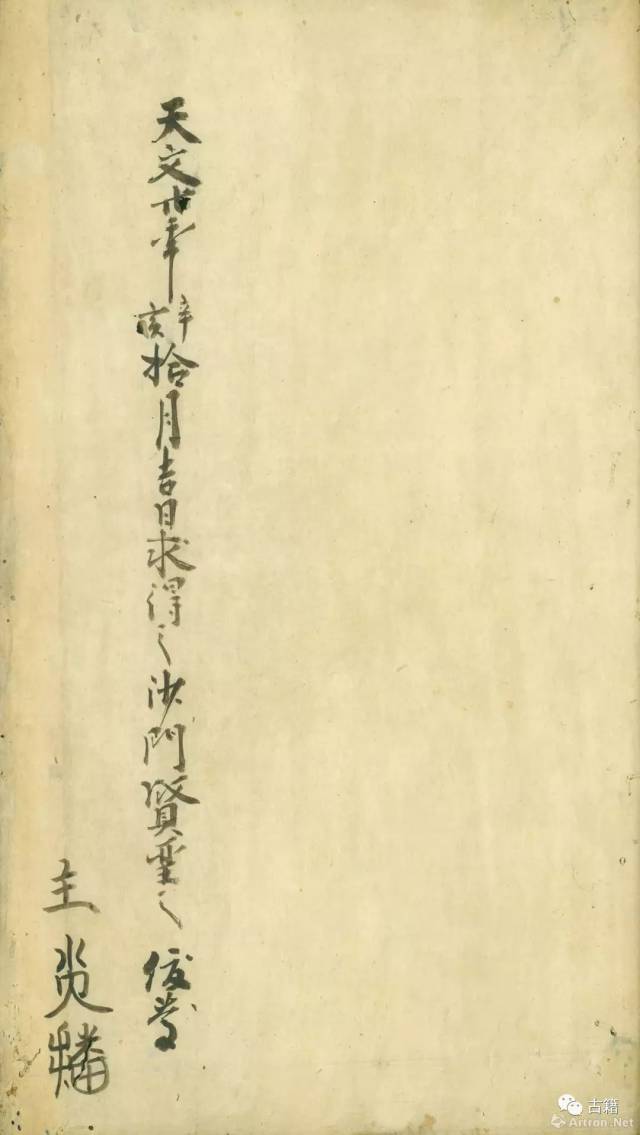 天文廿年辛亥拾月吉日求得之沙門賢
主
古籍
Artron.Net